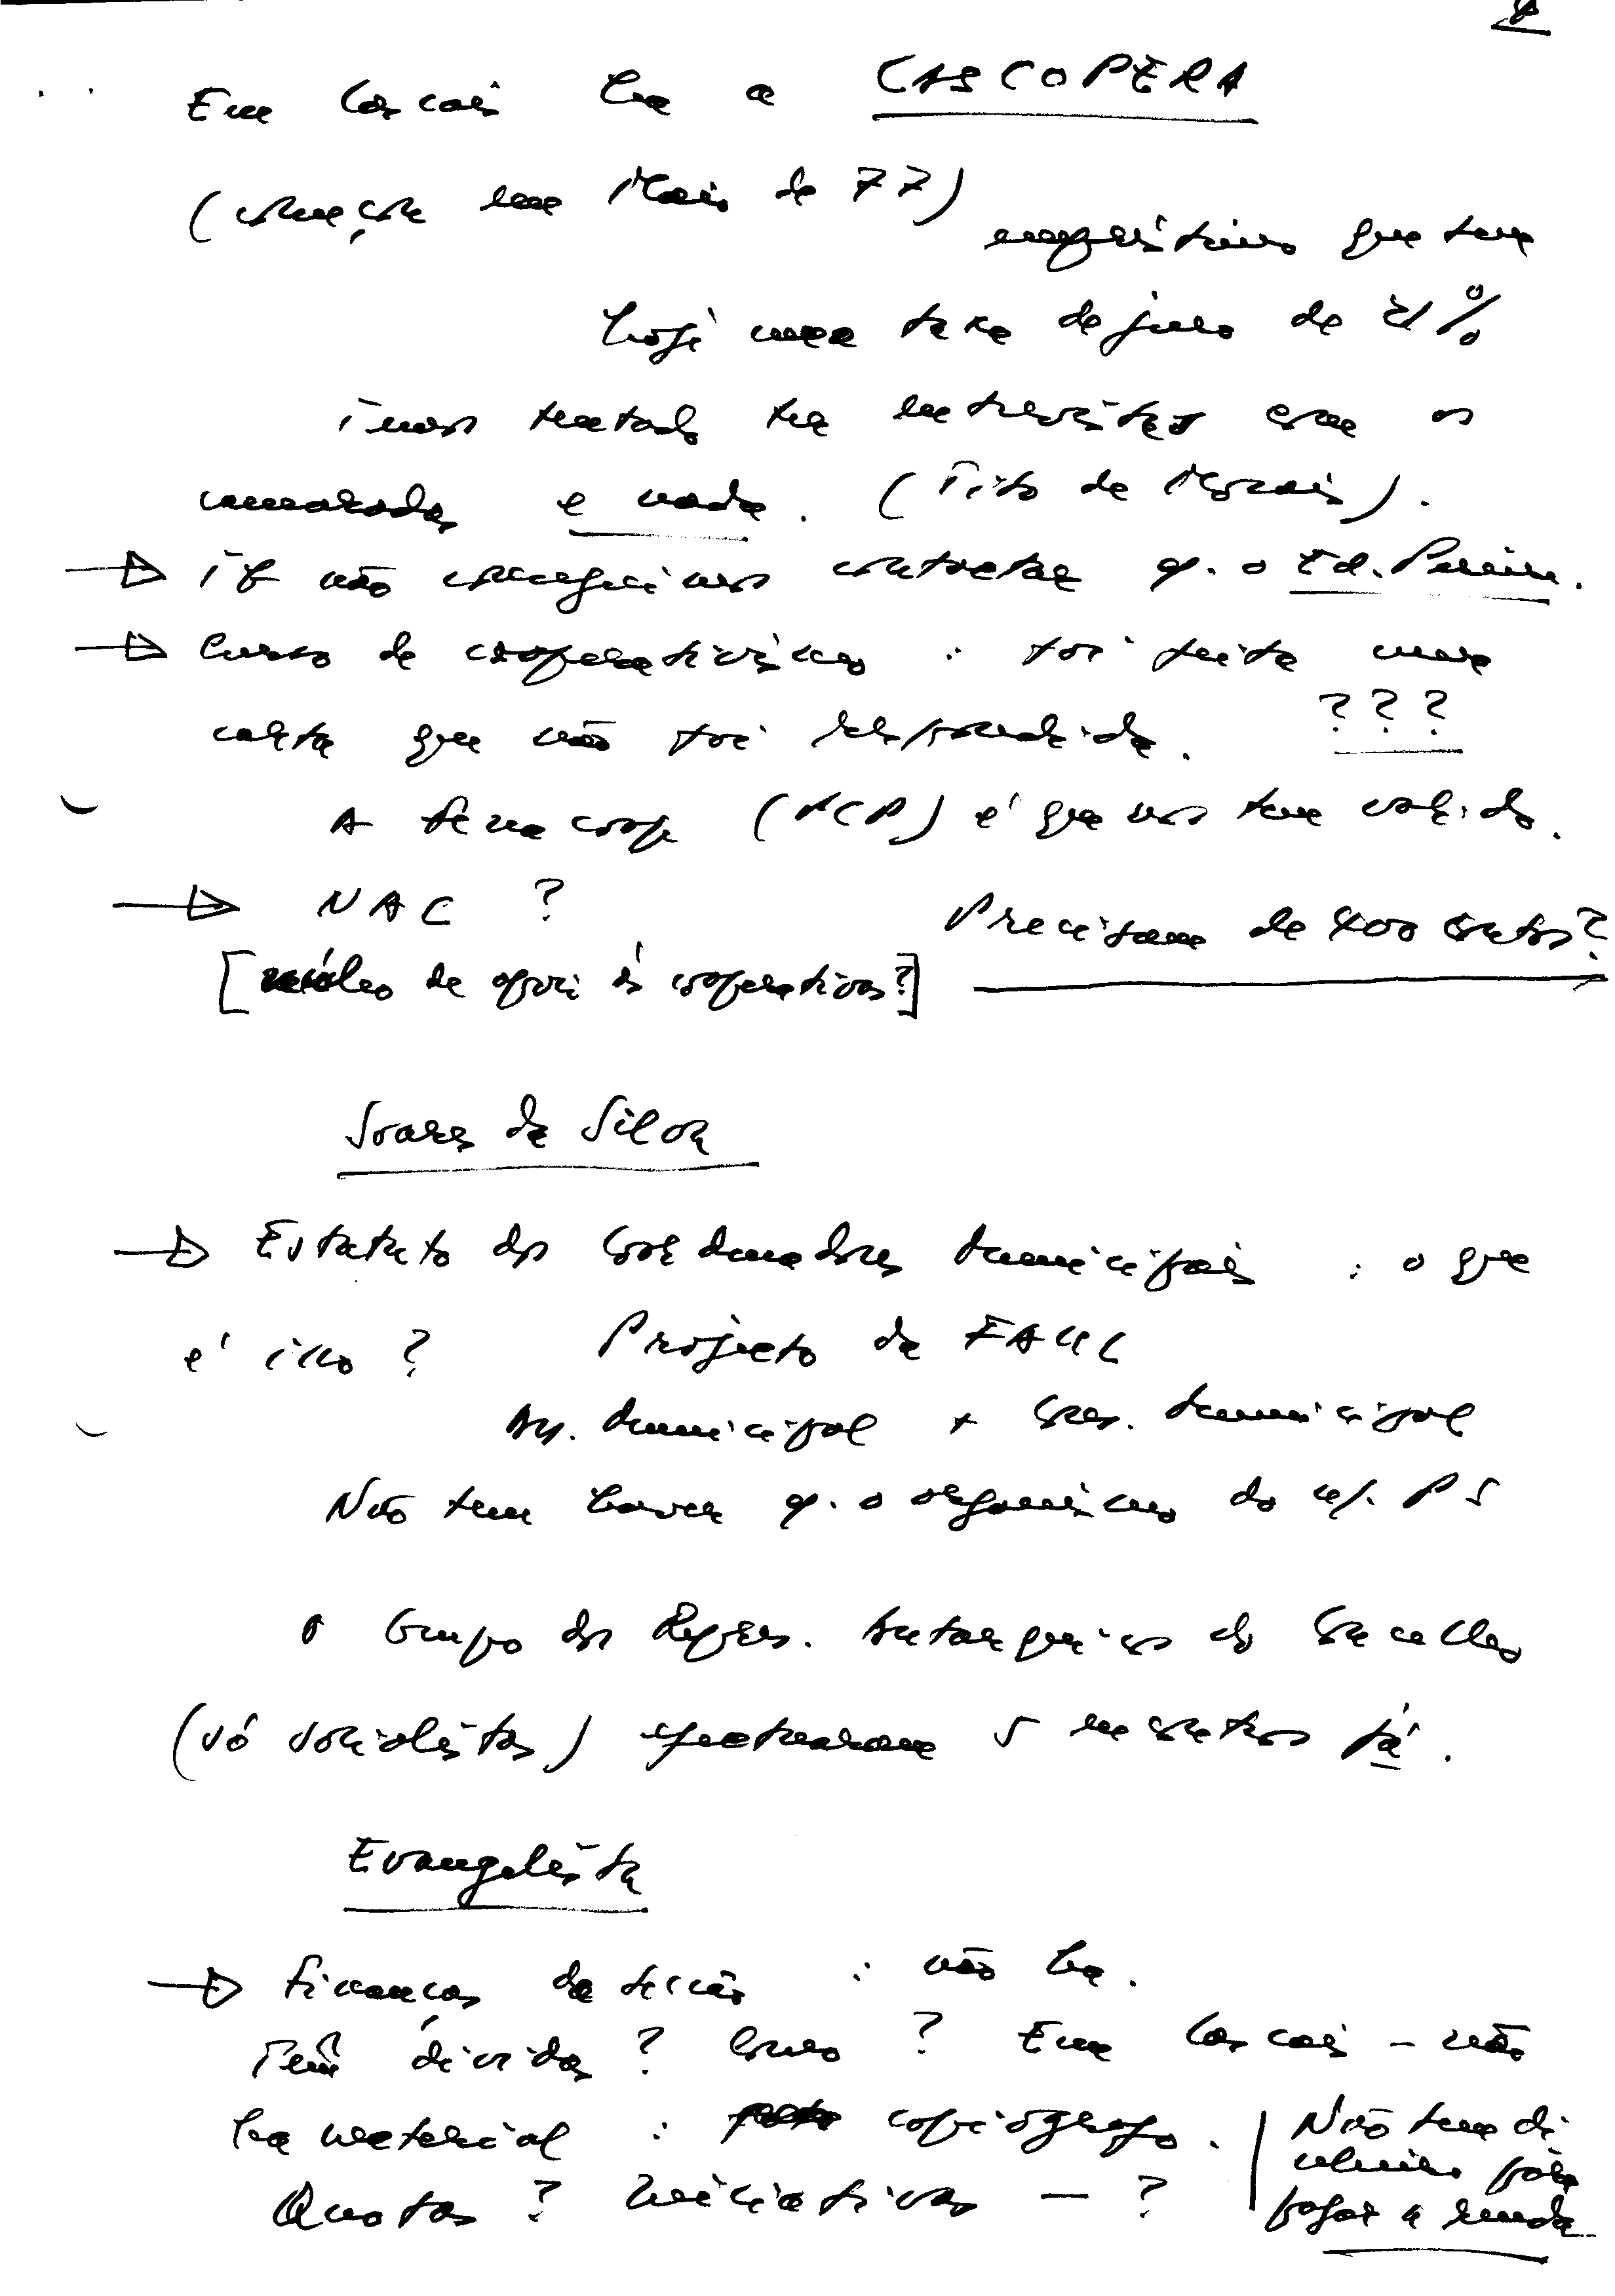 Em Cascais há a CASCOPERA
(começou em Maio de 77)
empréstimos que tem
hoje uma taxa de juro de 21%
Temos tentado ter entrevistas com os
camaradas e nada. (Tito de Morais).
→ Tb não conseguimos contactar c/. o Ed. Pereira.
→ Curso de cooperativismo : foi feita uma
carta que não foi respondida. ???
A Fenacoop (PCP) é que nos tem valido.
→ NAC ? Precisam de 400 contos?
[núcleo de apoio às cooperativas?]
Soares da Silva
→ Estatuto dos Coordenadores Municipais : o que
é isso ? Projecto da FAUL
Ass. Municipal + Coor. Municipal
Não tem haver c/. o organismo do n/. PS
O Grupo de Repres. Autárquicos do Concelho
(só socialistas) efectuaram 5 encontros já.
Evangelista
→ Finanças da secção : não há.
Tem dívidas ? Como ? Em Cascais - não
há material : copiógrafo.
Quotas ? Iniciativas — ?
Não tem di
nheiro para
pagar a renda